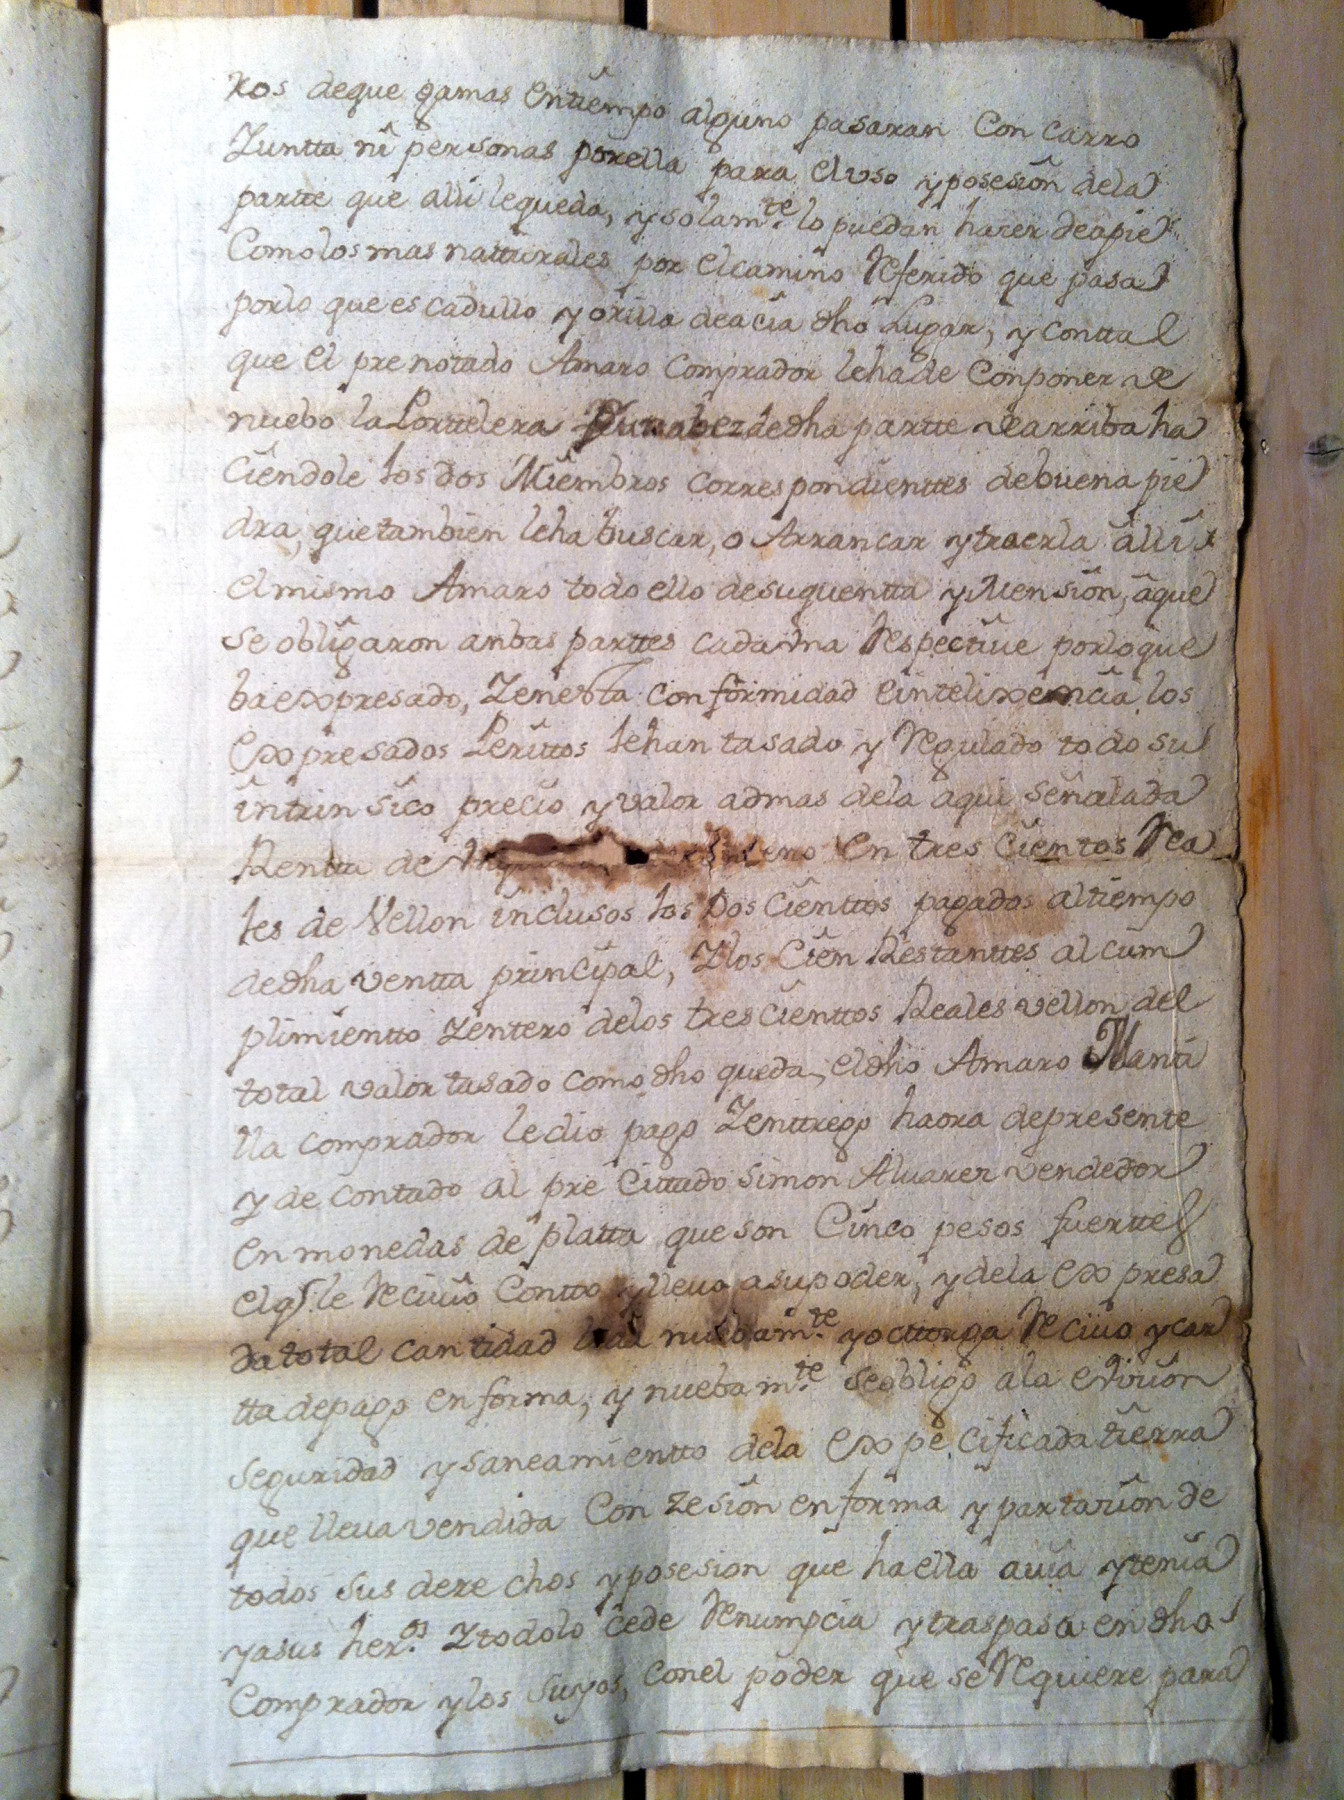 ros deque gamas Entiempo alguno pasaran Con Carro
Zuntta ni personas porella para eluso yposesion dela
partte que alli lequeda, ysolam.te lo puedan hacer deapie
Comolos mas natturales por elcamino Referido que pasa
porlo que es cadullo y orilla deacia dho Lugar, y conttal
que el prenotado Amaro Comprador lehade Conponer de
nuebo laPorttelera dedha partte dearriba ha
ciendole los dos Miembros Correspondienttes debuena pie
dra, quetambien leha buscar, o Arrancar ytraerla alli
elmismo Amaro todo ello desuquentta y Mension, aque
Se obligaron anbas parttes cadauna Respective porloque
baexpresado, Zenesta Conformidad einteligencia los
Expresados Perittos lehan tasado y Regulado todo su
intrinsico precio y valor admas dela aqui señalada
Rentta de en tres Cientos Rea
les de Vellon inclusos los Dos Cienttos pagados altiempo
dedha ventta principal, Zlos Cien Restanttes al cum
plimientto Zentero delos tres cienttos Reales vellon del
total valor tasado como dho queda, eldho Amaro Manti
lla comprador ledio pago Zenttrego haora depresente
y de contado al pre Cittado Simon Alvarez vendedor
en monedas de platta que son Cinco pesos fuerttes
elq.l le Recivio Contto y llevo asupoder, ydela expresa
da total cantidad nuebam.te yottorga Recivo ycar
tta depago en forma, y nuebam.te Seobligo ala evicion
seguridad y saneamientto dela expecificada tierra
que lleva vendida Con Zesion en forma y partacion de
todos sus derechos yposesion que haella avia ytenia
yasus her.os Ztodolo Cede Renumpcia y traspasa en dho
Comprador ylos suyos, conel poder que se Requiere para